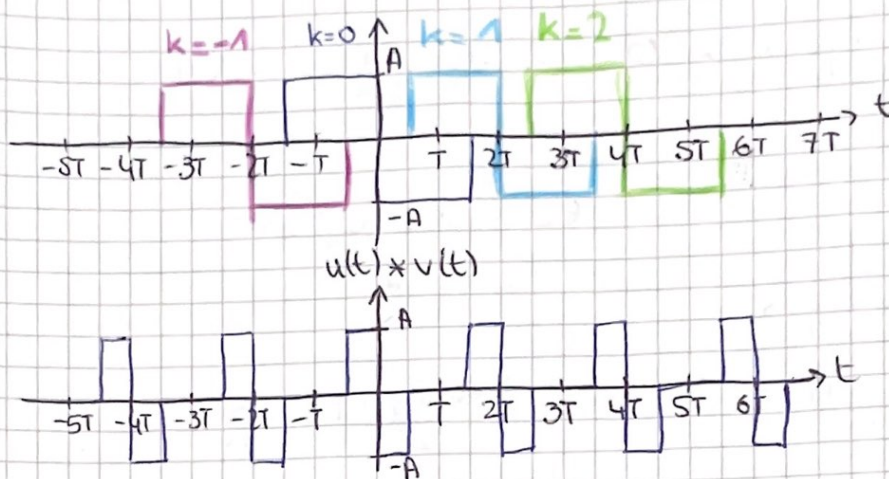 k=-1 k=0 k=1 k=2
A
t
-5T -4T -3T -2T -T T 2T 3T 4T 5T 6T 7T
-A
u(t)*v(t)
A
t
-5T -4T -3T -2T -T T 2T 3T 4T 5T 6T
-A